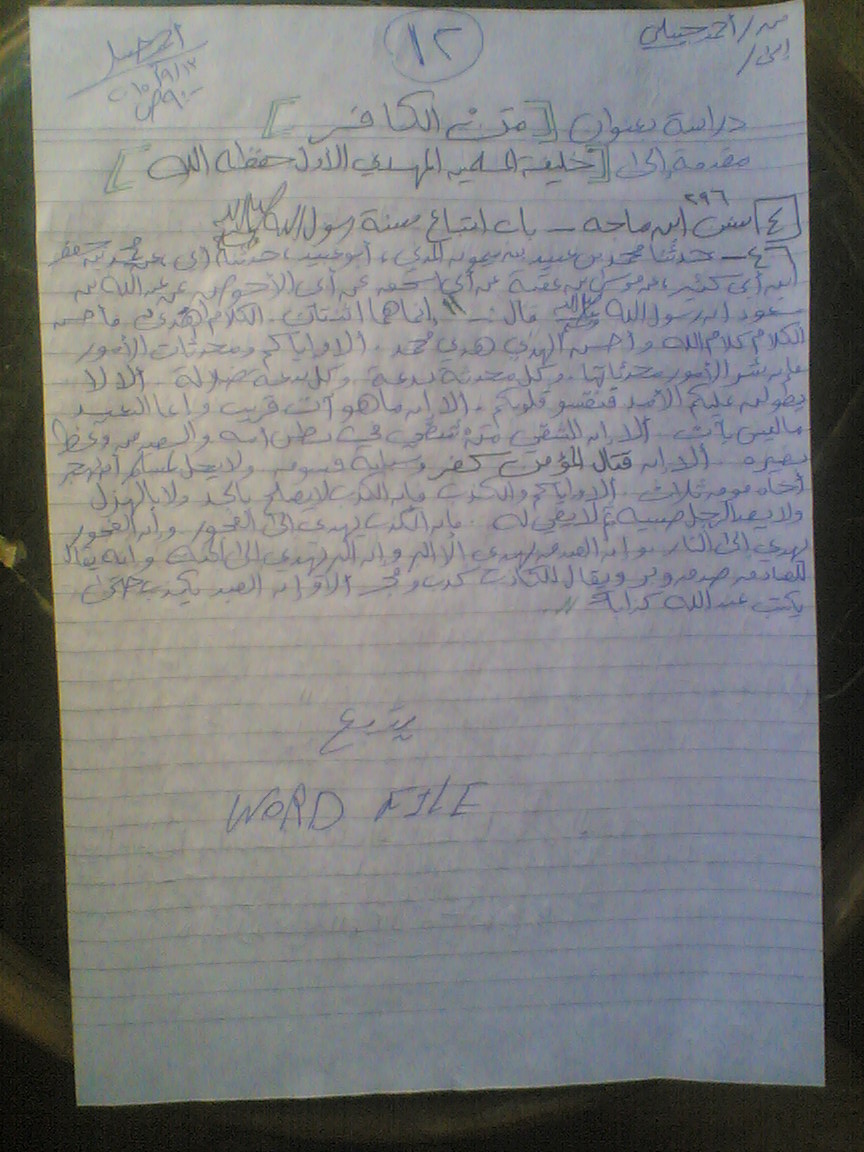 من / أحمد
إلى /
١٢
أحمد
دراسة بعنوان [ من الكافر ]
مقدمة إلى [ خليفة المهدي الأول حفظه الله ]
٢٩٦
٤ سنن ابن ماجه - باب اتباع سنة رسول الله
٤٦ - حدثنا محمد بن عبيد بن ميمون المدني ، أبو عبيد ، حدثنا أبي ، عن محمد بن جعفر
ابن أبي كثير ، عن موسى بن عقبة عن أبي اسحق عن أبي الأحوص عن عبد الله بن
مسعود ان رسول الله قال :- " إنما هما اثنتان . الكلام والهدى فأحسن
الكلام كلام الله وأحسن الهدي هدى محمد . ألا واياكم ومحدثات الأمور
فإن شر الأمور محدثاتها . وكل محدثة بدعة . وكل بدعة ضلالة . ألا لا
يطولن عليكم الأمد فتقسو قلوبكم . ألا إن ما هو آت قريب وإنما البعيد
ما ليس بآت . ألا إن الشقي من شقي في بطن امه والسعيد من وعظ
بغيره . ألا إن قتال المؤمن كفر وسبابه فسوق ولا يحل لمسلم أن يهجر
أخاه فوق ثلاث . ألا واياكم والكذب فإن الكذب لا يصلح بالجد ولا بالهزل
ولا يعد الرجل صبيه ثم لا يفي له . فإن الكذب يهدى إلى الفجور وان الفجور
يهدي إلى النار . وان الصدق يهدي إلى البر وان البر يهدى إلى الجنة وانه يقال
للصادق صدق وبر ويقال للكاذب كذب وفجر ألا وان العبد يكذب حتى
يكتب عند الله كذابا " .
يتبع
WORD FILE